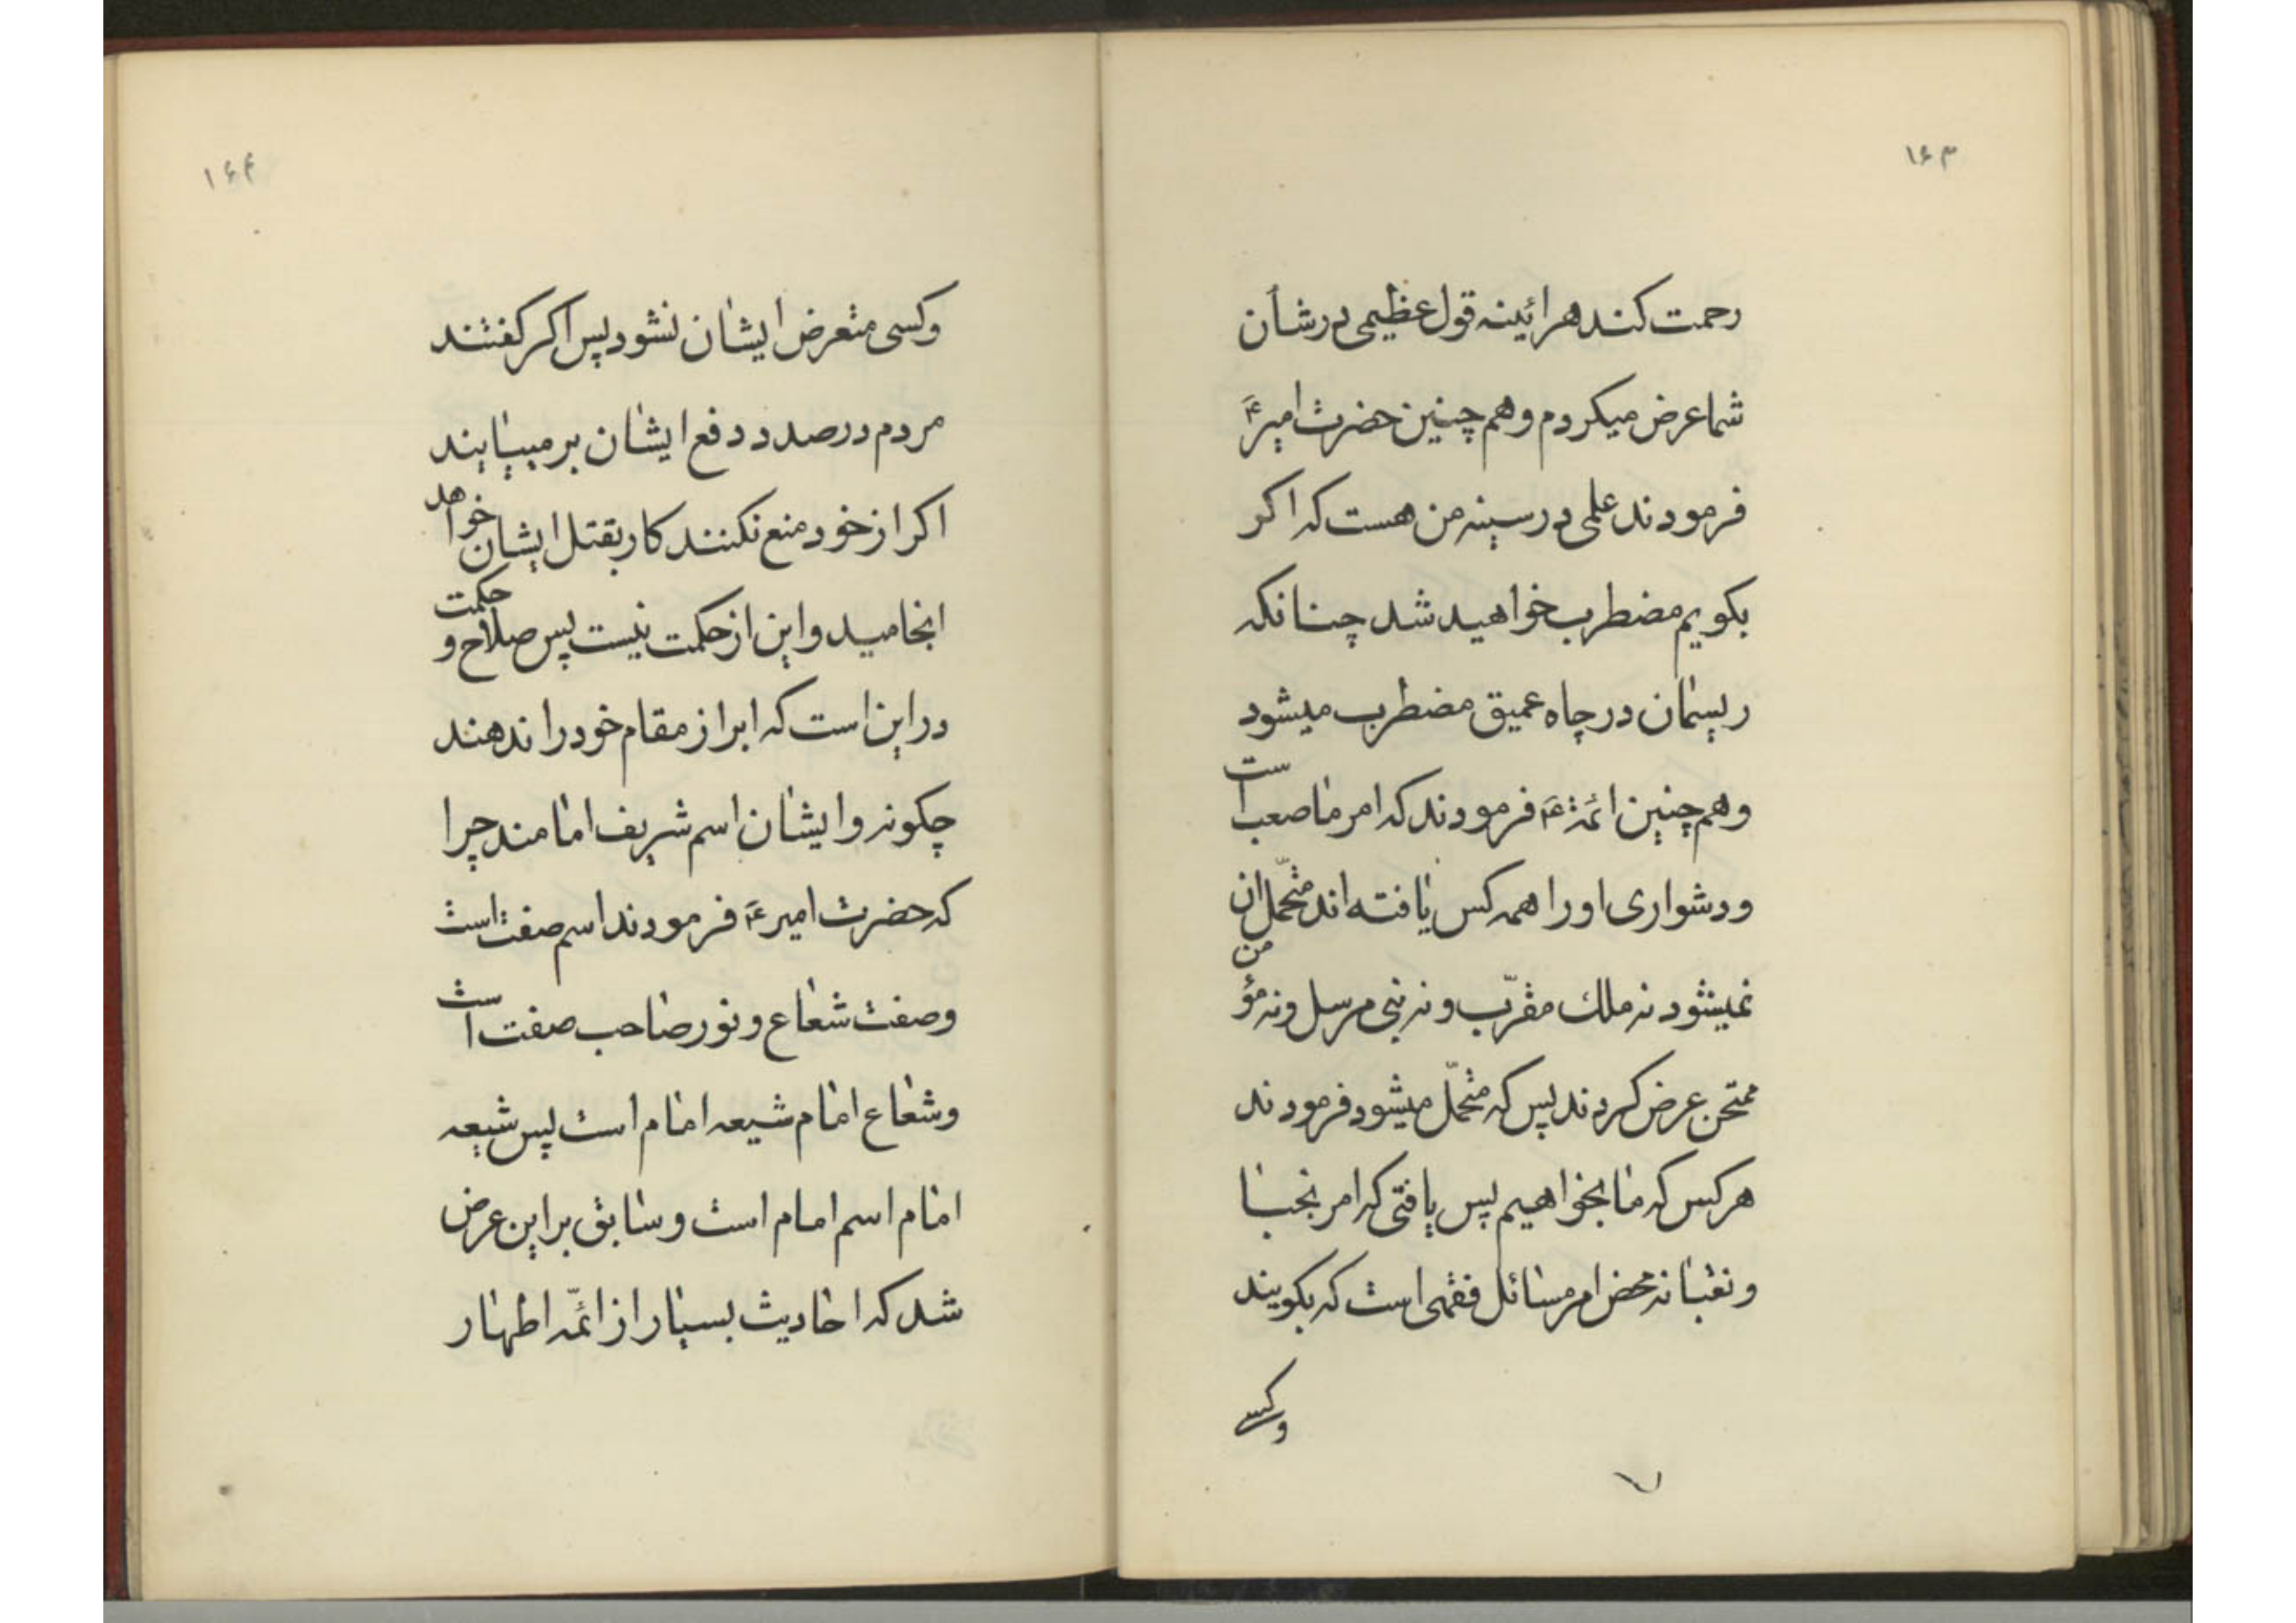 ۱۶۳
رحمت کند هرائینه قول عظیمی در شأن
شما عرض میکردم و هم چنین حضرت امیر ع
فرمودند علمی در سینه من هست که اکر
بکویم مضطرب خواهید شد چنانکه
ریسمان در چاه عمیق مضطرب میشود
و هم چنین ائمة ع فرمودند که امر ما صعب است
و دشواری او را همه کس یافته اند متحمّل ان
نمیشود نه ملك مقرّب و نه نبی مرسل و نه مؤمن
ممتحن عرض کردند پس که متحمّل میشود فرمودند
هر کس که ما بخواهیم پس یافتی که امر نجبا
و نقبا نه محض امر مسائل فقهی است که بکویند
وکسی
۱۶۴
وکسی متعرض ایشان نشود پس اکر کفتند
مردم در صدد دفع ایشان بر میایند
اکر از خود منع نکنند کار بقتل ایشان خواهد
انجامید و این از حکمت نیست پس صلاح و حکمت
در این است که ابراز مقام خود را ندهند
چکونه و ایشان اسم شریف امامند چرا
که حضرت امیر ع فرمودند اسم صفت است
و صفت شعاع و نور صاحب صفت است
و شعاع امام شیعه امام است پس شیعه
امام اسم امام است و سابق بر این عرض
شد که احادیث بسیار از ائمّه اطهار